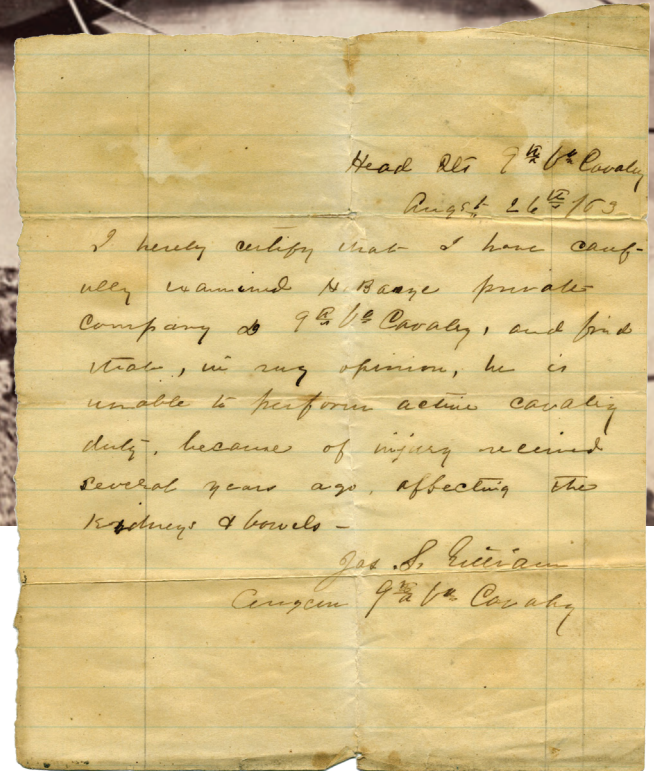 Head Qts 9th Va Cavalry
Augst 26th /63
I hereby certify that I have caref-
ully examined H. Barye private
company D 9th Va Cavalry, and find
that, in my opinion, he is
unable to perform active cavalry
duty, because of injury received
several years ago, affecting the
kidneys & bowels –
Jas. S. Gilliam
Surgeon 9th Va Cavalry